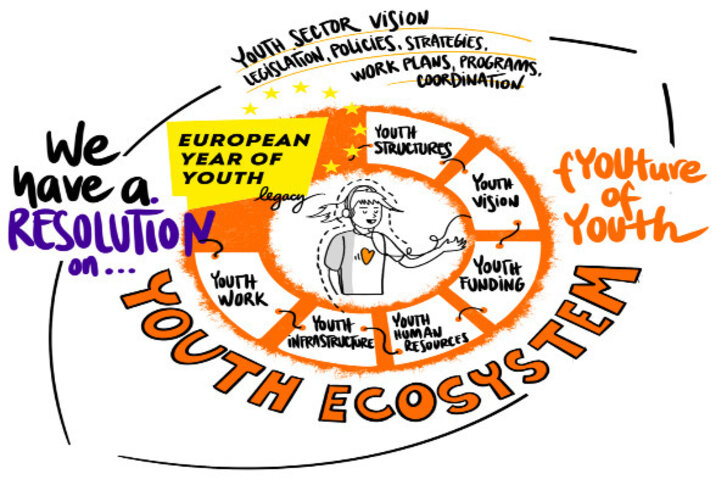 YOUTH SECTOR VISION
LEGISLATION, POLICIES, STRATEGIES,
WORK PLANS, PROGRAMS,
COORDINATION
We
have a.
RESOLUTION
on...
EUROPEAN
YEAR OF
YOUTH
legacy
YOUTH
STRUCTURES
YOUTH
VISION
YOUTH
FUNDING
YOUTH
HUMAN
RESOURCES
YOUTH
iNFRASTRUCTURE
YOUTH
WORK
fYOUture
of
Youth
YOUTH ECOSYSTEM